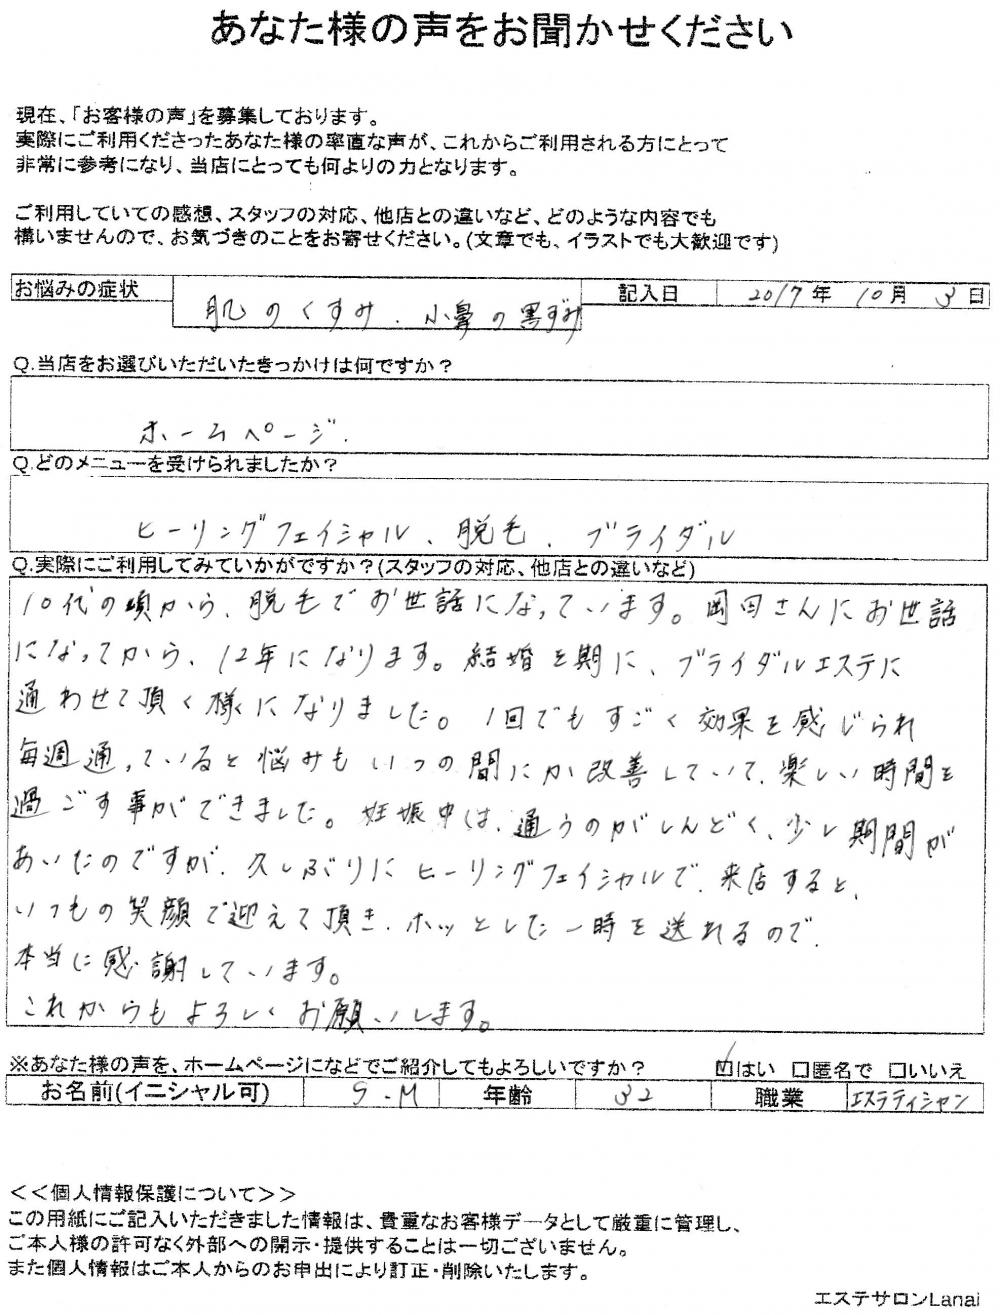 あなた様の声をお聞かせください
現在、「お客様の声」を募集しております。
実際にご利用くださったあなた様の率直な声が、これからご利用される方にとって
非常に参考になり、当店にとっても何よりの力となります。
ご利用していての感想、スタッフの対応、他店との違いなど、どのような内容でも
構いませんので、お気づきのことをお寄せください。(文章でも、イラストでも大歓迎です)
お悩みの症状 肌のくすみ、小鼻の黒ずみ 記入日 2017年 10月 3日
Q.当店をお選びいただいたきっかけは何ですか？
ホームページ.
Q.どのメニューを受けられましたか？
ヒーリングフェイシャル、脱毛、ブライダル
Q.実際にご利用してみていかがですか？(スタッフの対応、他店との違いなど)
10代の頃から、脱毛でお世話になっています。岡田さんにお世話
になってから、12年になります。結婚を期に、ブライダルエステに
通わせて頂く様になりました。1回でもすごく効果を感じられ
毎週通っていると悩みもいつの間にか改善していて、楽しい時間を
過ごす事ができました。妊娠中は、通うのがしんどく、少し期間が
あいたのですが、久しぶりにヒーリングフェイシャルで、来店すると、
いつもの笑顔で迎えて頂き、ホッとした一時を送れるので、
本当に感謝しています。
これからもよろしくお願いします。
※あなた様の声を、ホームページになどでご紹介してもよろしいですか？ ☑はい □匿名で □いいえ
お名前(イニシャル可) S.M 年齢 32 職業 エステティシャン
<<個人情報保護について>>
この用紙にご記入いただきました情報は、貴重なお客様データとして厳重に管理し、
ご本人様の許可なく外部への開示・提供することは一切ございません。
また個人情報はご本人からのお申出により訂正・削除いたします。
エステサロンLanai